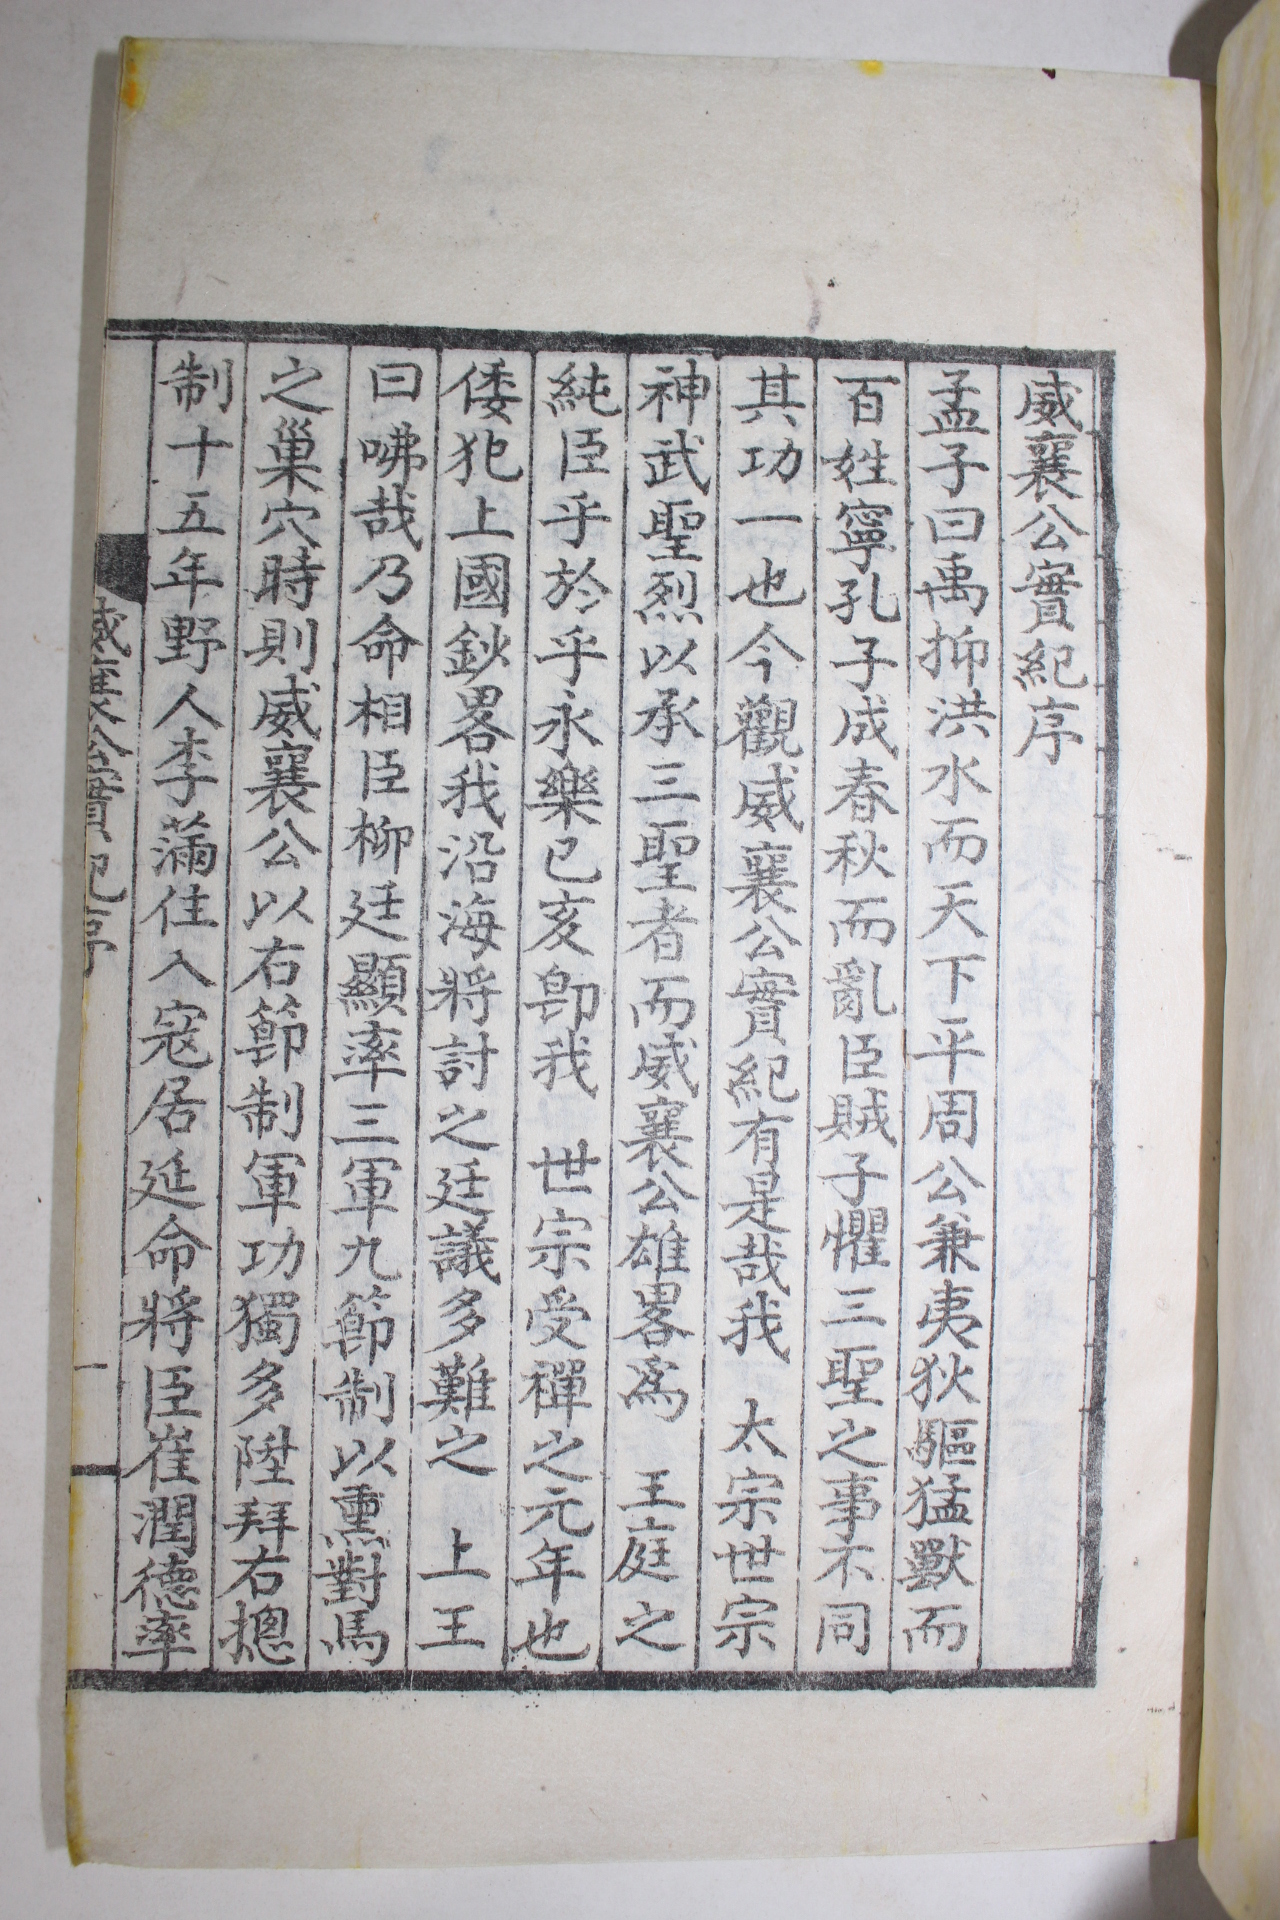 威襄公實紀序
孟子曰禹抑洪水而天下平周公兼夷狄驅猛獸而
百姓寧孔子成春秋而亂臣賊子懼三聖之事不同
其功一也今觀威襄公實紀有是哉我 太宗世宗
神武聖烈以承三聖者而威襄公雄畧爲 王庭之
純臣乎於乎永樂已亥卽我 世宗受禪之元年也
倭犯上國鈔畧我沿海將討之廷議多難之 上王
曰咈哉乃命相臣柳廷顯率三軍九節制以熏對馬
之巢穴時則威襄公以右節制軍功獨多陞拜右摠
制十五年野人李滿住入寇居延命將臣崔潤德率
威襄公實紀序
一